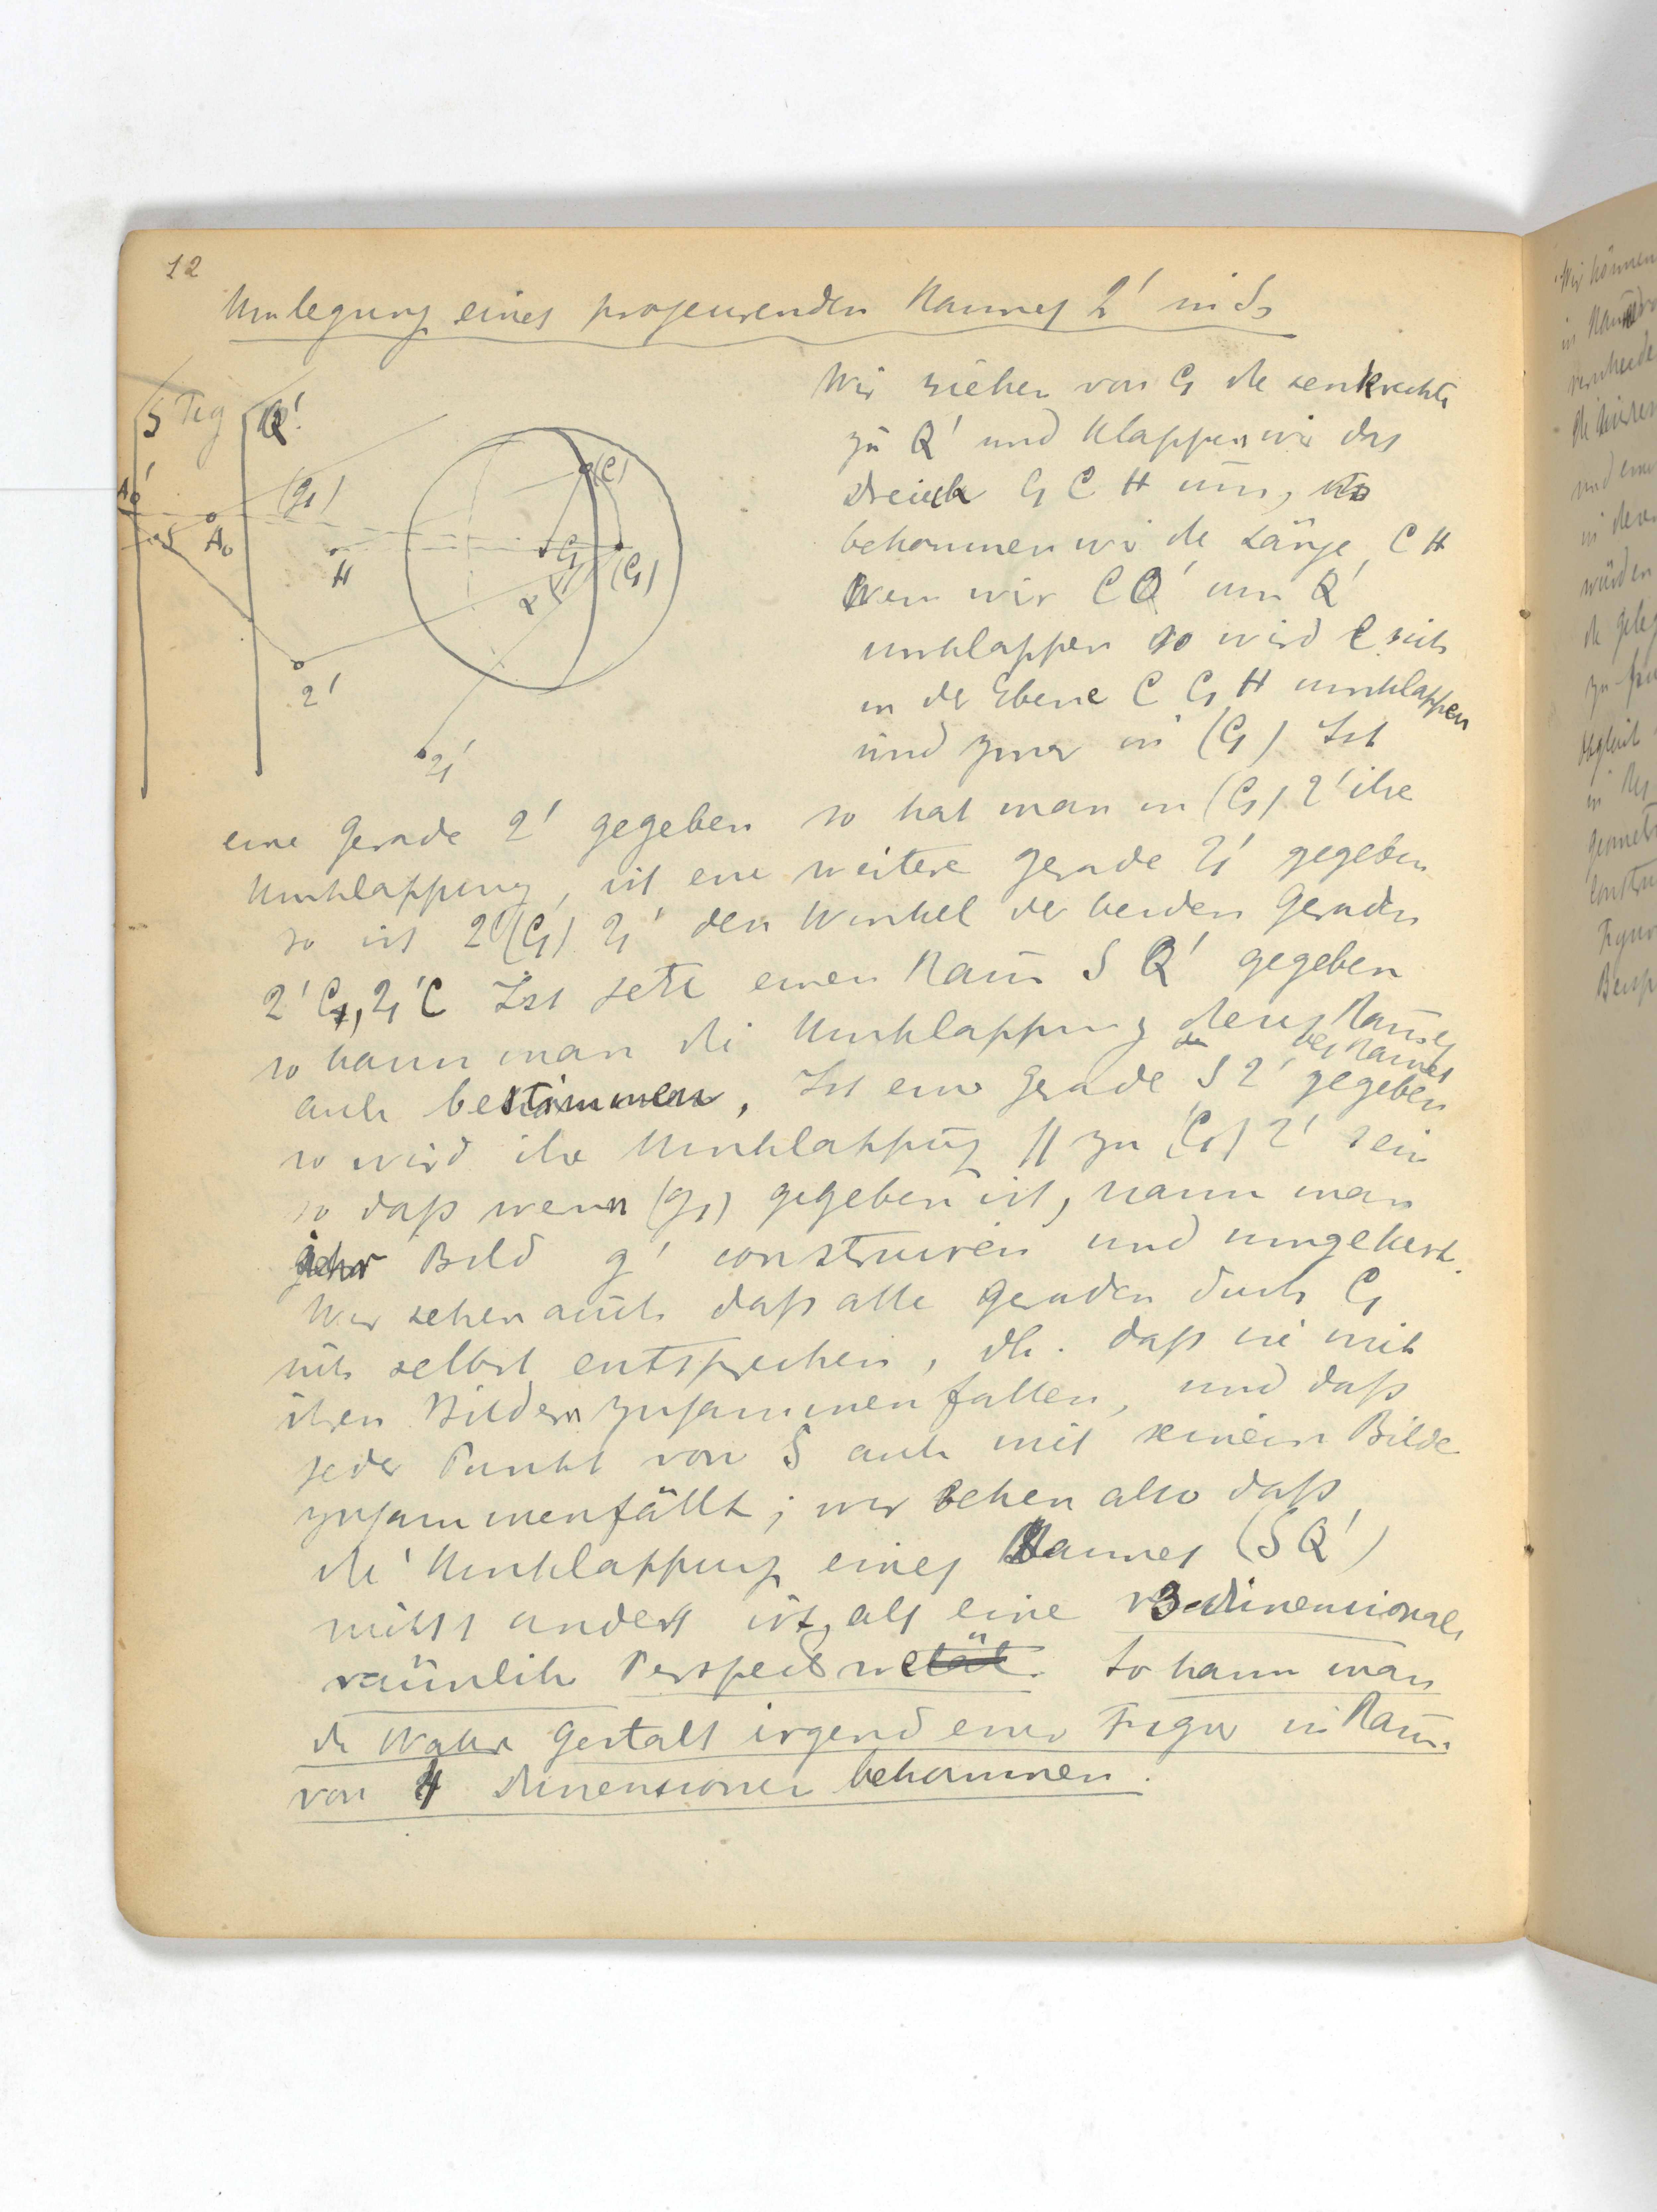 12
Umlegung eines projeurenden Raumes 2' in S
S Fig Q'
A0' A0 (g1) H C1 (C) (C1) α S 2' 21'
Wir ziehen von C1 die senkrechte
zu Q' und klappen wir das
Dreieck C1 C H um, so
bekommen wir die Länge CH
Wen wir CQ' um Q'
umklappen so wird C sich
in der Ebene C C1 H umklappen
und zwar in (C1) Ist
eine Gerade 2' gegeben so hat man in (C1) 2' ihre
Umklappung, ist eine weitere gerade 21' gegeben
so ist 2'(C1) 21' den Winkel der beiden Geraden
2'C1, 21'C Ist jetzt einen Raum S Q' gegeben
so kann man die Umklappung Raumes
auch bestimmen, Ist eine gerade S 2' gegeben
des Raumes
so wird ihre Umklappung // zu (C1) 2' sein
so daß wenn (g1) gegeben ist, kann man
ihr Bild g' construiren und umgekert.
Wir sehen auch daß alle geraden durch C1
sich selbst entsprechen, dh. daß sie mit
ihren Bildern zusammenfallen, und daß
jeder Punkt von S auch mit seinem Bilde
zusammenfällt; wir sehen also daß
die Umklappung eines Raumes (S Q')
nichts anders ist, als eine 3 dimensionale
räumlich Perspective. So kann man
die Wahre Gestalt irgend einer Figur in Raum
von 4 Dimensionen bekommen.
Wir können
in
und eine
in
würden
zu
in
Figur